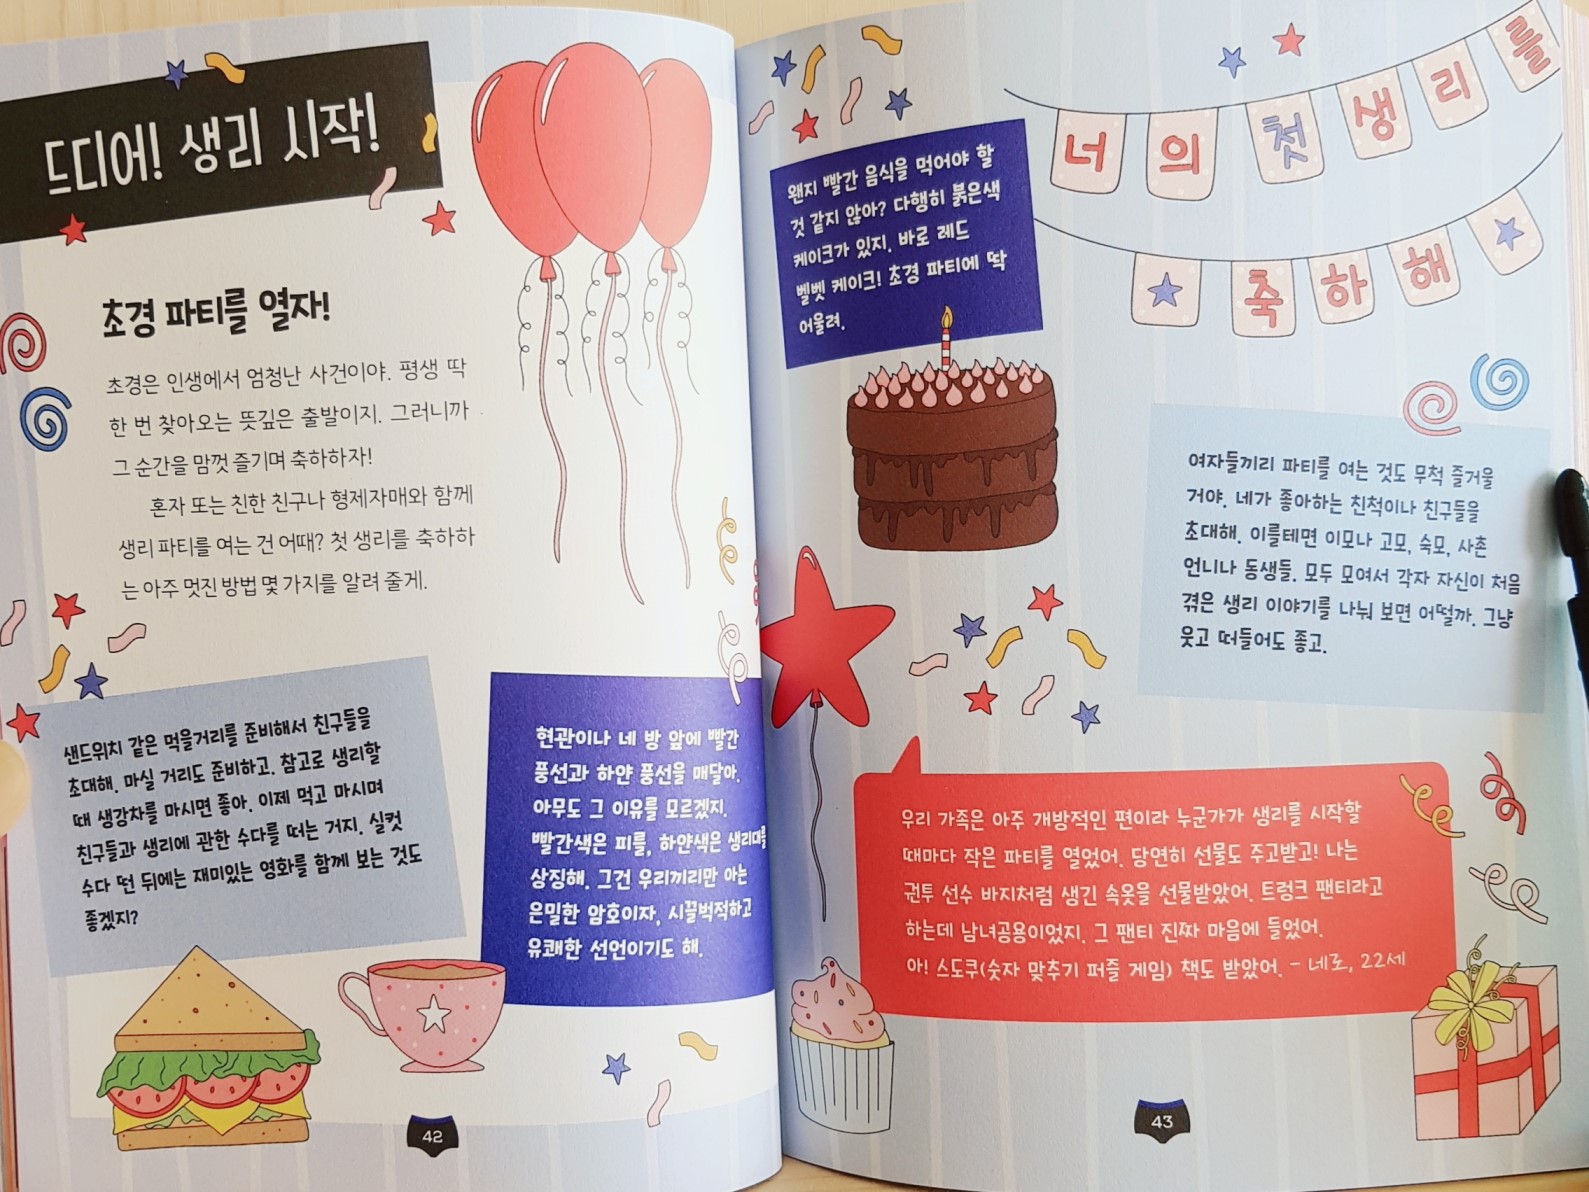 드디어! 생리 시작!
초경 파티를 열자!
초경은 인생에서 엄청난 사건이야. 평생 딱
한 번 찾아오는 뜻깊은 출발이지. 그러니까
그 순간을 맘껏 즐기며 축하하자!
혼자 또는 친한 친구나 형제자매와 함께
생리 파티를 여는 건 어때? 첫 생리를 축하하
는 아주 멋진 방법 몇 가지를 알려 줄게.
샌드위치 같은 먹을거리를 준비해서 친구들을
초대해. 마실 거리도 준비하고. 참고로 생리할
때 생강차를 마시면 좋아. 이제 먹고 마시며
친구들과 생리에 관한 수다를 떠는 거지. 실컷
수다 떤 뒤에는 재미있는 영화를 함께 보는 것도
좋겠지?
현관이나 네 방 앞에 빨간
풍선과 하얀 풍선을 매달아.
아무도 그 이유를 모르겠지.
빨간색은 피를, 하얀색은 생리대를
상징해. 그건 우리끼리만 아는
은밀한 암호이자, 시끌벅적하고
유쾌한 선언이기도 해.
42
너의 첫 생리를
축하해
왠지 빨간 음식을 먹어야 할
것 같지 않아? 다행히 붉은색
케이크가 있지. 바로 레드
벨벳 케이크! 초경 파티에 딱
어울려.
여자들끼리 파티를 여는 것도 무척 즐거울
거야. 네가 좋아하는 친척이나 친구들을
초대해. 이를테면 이모나 고모, 숙모, 사촌
언니나 동생들. 모두 모여서 각자 자신이 처음
겪은 생리 이야기를 나눠 보면 어떨까. 그냥
웃고 떠들어도 좋고.
우리 가족은 아주 개방적인 편이라 누군가가 생리를 시작할
때마다 작은 파티를 열었어. 당연히 선물도 주고받고! 나는
권투 선수 바지처럼 생긴 속옷을 선물받았어. 트렁크 팬티라고
하는데 남녀공용이었지. 그 팬티 진짜 마음에 들었어.
아! 스도쿠(숫자 맞추기 퍼즐 게임) 책도 받았어. – 네로, 22세
43